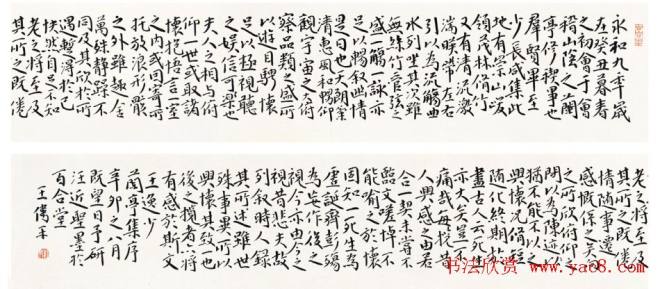 永和九年歲
在癸丑暮春
之初會于會
稽山陰之蘭
亭修禊事也
群賢畢至
少長咸集此
地有崇山峻
領茂林脩竹
又有清流激
湍暎帶左右
引以為流觴曲
水列坐其次雖
無絲竹管弦之
盛一觴一詠亦
足以暢敘幽情
是日也天朗氣
清惠風和暢仰
觀宇宙之大俯
察品類之盛所
以遊目騁懷
足以極視聽
之娛信可樂也
夫人之相與俯
仰一世或取諸
懷抱悟言一室
之內或因寄所
托放浪形骸
之外雖趣舍
萬殊靜躁不
同及其欣於所
遇暫得於己
快然自足不知
老之將至及
其所之既倦
老之將至及
其所之既倦
情隨事遷
感慨係之矣向
之所欣俛仰之
間以為陳迹
猶不能不以之
興懷況脩短
隨化終期於
盡古人云死生
亦大矣豈不
痛哉每攬昔
人興感之由若
合一契未嘗不
臨文嗟悼不
能喻之於懷
固知一死生為
虛誕齊彭殤
為妄作後之
視今亦由今之
視昔悲夫故
列敘時人錄
其所述雖世
殊事異所以
興懷其致一也
後之攬者亦將
有感於斯文
王逸少
蘭亭集序
辛卯之八月
既望日予研
汪近聖墨於
百合堂
王偉平
书法欣赏 www.yac8.com